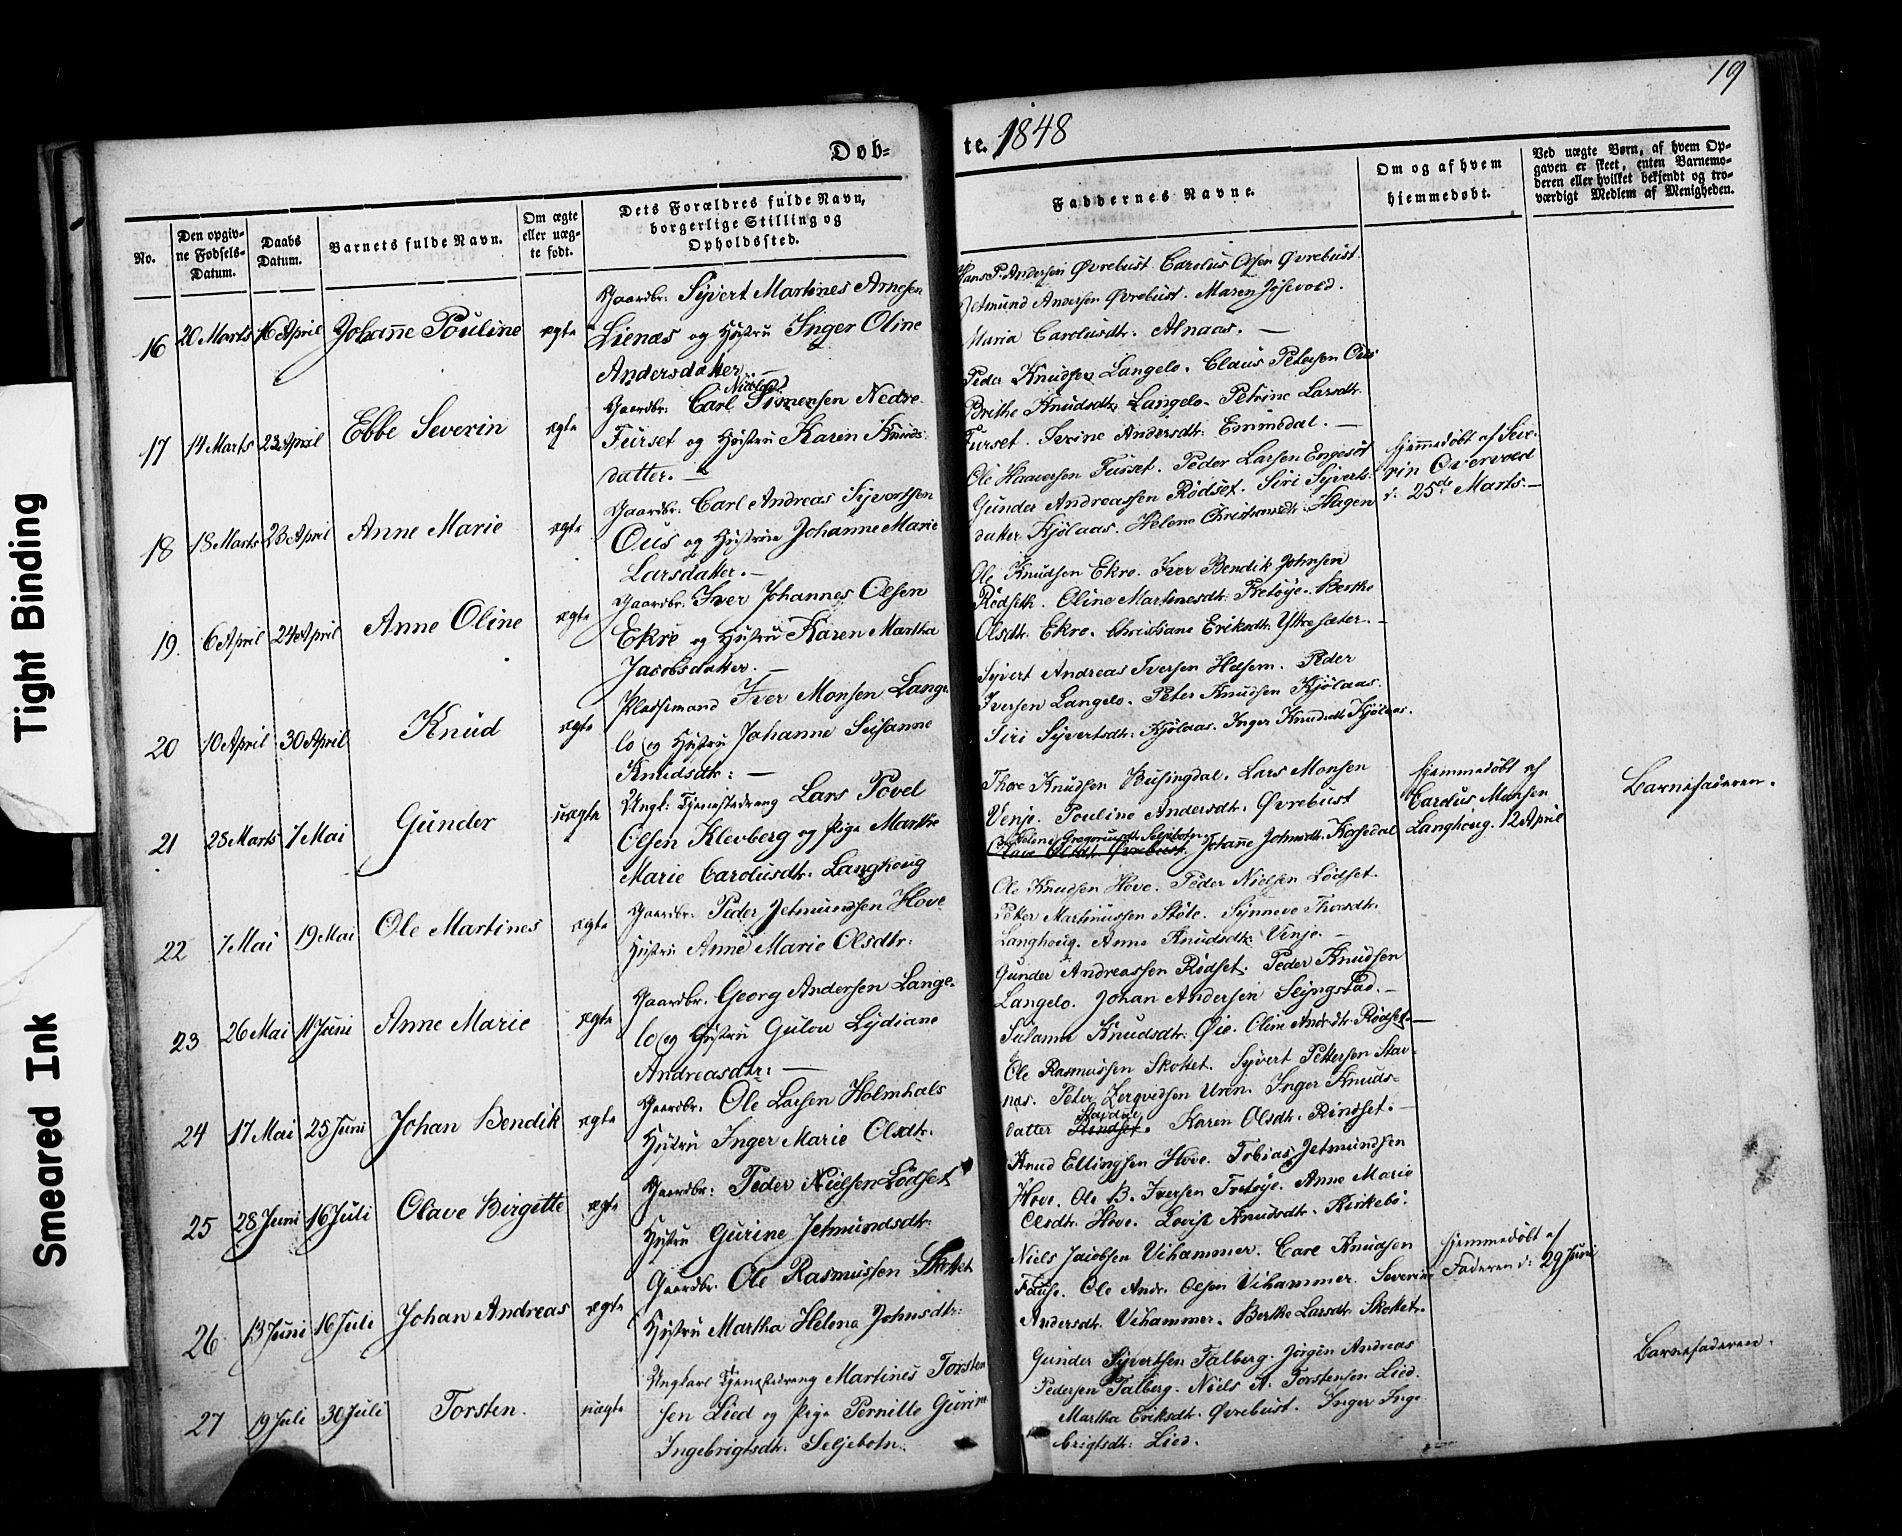 19
Døb-
te. 1848
No.
Den opgiv-
ne Fødsels-
Datum.
Daabs
Datum.
Barnets fulde Navn.
Om ægte
eller uæg-
te født.
Dets Forældres fulde Navn,
borgerlige Stilling og
Opholdssted.
Faddernes Navne.
Om og af hvem
hjemmedøbt.
Ved uægte Børn, af hvem Op-
gaven er skeet, enten Barnemo-
deren eller hvilket bekjendt og tro-
værdigt Medlem af Menigheden.
16 20 Marts 16 April Johanne Pouline ægte
Gaardbr: Syvert Martines Arnesen
Lienæs og Hustru Inger Oline
Andersdatter. —
Hans P. Andersen Øvrebust. Carolus Olsen Øvrebust.
Jetmund Andersen Øvrebust. Maren
Maria Carolusdtr. Alnaas. —
17 14 Marts 23 April Ebbe Severin ægte
Gaardbr: Carl Nicolai Simensen Nedre
Furset og Hustru Karen Knuds-
datter. —
Peder Knudsen Langelo. Claus Petersen Ous
Brithe Knudsdtr. Langelo. Petrine Larsdtr.
Furset. Serine Andersdtr: Emmedal. —
18 18 Marts 23 April Anne Marie ægte
Gaardbr: Carl Andreas Syvertsen
Ous og Hustrue Johanne Marie
Larsdatter. —
Ole Haaversen Furset. Peder Larsen Engeset
Gunder Andreassen Rødset. Siri Syverts-
datter Kjölaas. Helene Christiansdtr Hagen
hjemmedøbt af Seve-
rin Overvold
d. 25de Marts. —
19. 6 April 24 April Anne Oline ægte
Gaardbr. Iver Johannes Olsen
Ekre og Hustru Karen Martha
Jacobsdatter. —
Ole Knudsen Ekre. Iver Bendik Johnsen
Rödseth. Oline Martinesdtr: Tretöye. Berthe
Olsdtr. Ekre. Christiane Eriksdtr. Yttresæter. —
20 10 April 30 April Knud ægte
Pladsemand Iver Monsen Lange-
lo og Hustru Johanne Susanne
Knudsdtr: —
Syvert Andreas Iversen Helsem. Peder
Iversen Langelo. Peter Knudsen Kjölaas.
Siri Syvertsdtr: Kjölaas. Inger Knudsdt Kjölaas.
21 28 Marts 7 Mai Gunder uægte
Ungk: Tjenestedreng Lars Povel
Olsen Klevberg og Pige Marthe
Marie Carolusdtr. Langhoug
Thore Knudsen Busingdal. Lars Monsen
Venje. Pouline Andersdtr. Øvrebust
Helene Gregoriusdtr Seljebotn
Olave Olsdtr. Øvrebust. Johanne Johnsdtr. Korsedal
hjemmedøbt af
Carolus Monsen
Langhoug. 12 April
Barnefaderen.
22 7 Mai 19 Mai Ole Martines ægte
Gaardbr. Peder Jetmundsen Hove
Hustru Anne Marie Olsdtr:
Ole Knudsen Hove. Peder Nielsen Lödset.
Petter Martinussen Støle. Synneve Thoresdtr.
Langhoug. Anne Knudsdtr: Venje. —
23 26 Mai 11 Juni Anne Marie ægte
Gaardbr. Georg Andersen Lange-
lo og Hustru Gulou Lydiane
Andreasdtr: —
Gunder Andreassen Rödset. Peder Knudsen
Langelo. Johan Andersen Slyngstad. —
Susanne Knudsdtr: Øie. Oline Andrsdtr. Rödset. —
24 17 Mai 25 Juni Johan Bendik ægte
Gaardbr. Ole Larsen Holmhals
Hustru Inger Marie Olsdtr.
Ole Rasmussen Skottet. Syvert Pettersen Stav-
næs. Peter Uren. Inger Knuds-
datter Rindset. Karen Olsdtr. Rindset. —
25 28 Juni 16 Juli Olave Birgitte ægte
Gaardbr: Peder Nielsen Lödset
Hustru Gurine Jetmundsdtr:
Knud Ellingsen Hove. Tobias Jetmundsen
Hove. Ole B. Iversen Tretöye. Anne Marie
Olsdtr. Hove. Lovise Knudsdtr. Kirkebö.
26 13 Juni 16 Juli Johan Andreas ægte
Gaardbr. Ole Rasmussen Skottet
Hustru Martha Helene Johnsdtr:
Niels Jacobsen Vihammer. Carl Knudsen
Fause. Ole Andr. Olsen Vihammer. Severine
Andersdtr. Vihammer. Berthe Larsdtr. Skottet.
hjemmedøbt af
Faderen d: 29 Juni
27 19 Juli 30 Juli Torsten. uægte
Ungkarl Tjenestedreng Martines Torsten-
sen Lied og Pige Pernille Gurine
Ingebrigtsdtr: Seljebotn.
Gunder Syvertsen Talberg. Jörgen Andreas
Pedersen Talberg. Niels A. Torstensen Lied.
Martha Eriksdtr. Øvrebust. Inger Inge-
brigtsdtr: Lied.
Barnefaderen.
Tight Binding
Smeared Ink